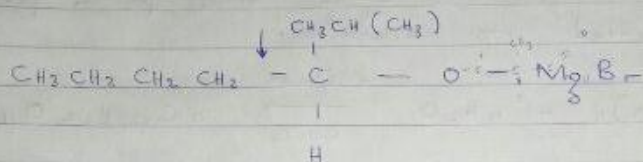 CH3CH (CH3)
CH3 CH2 CH2 CH2 - C - O - Mg Br
H